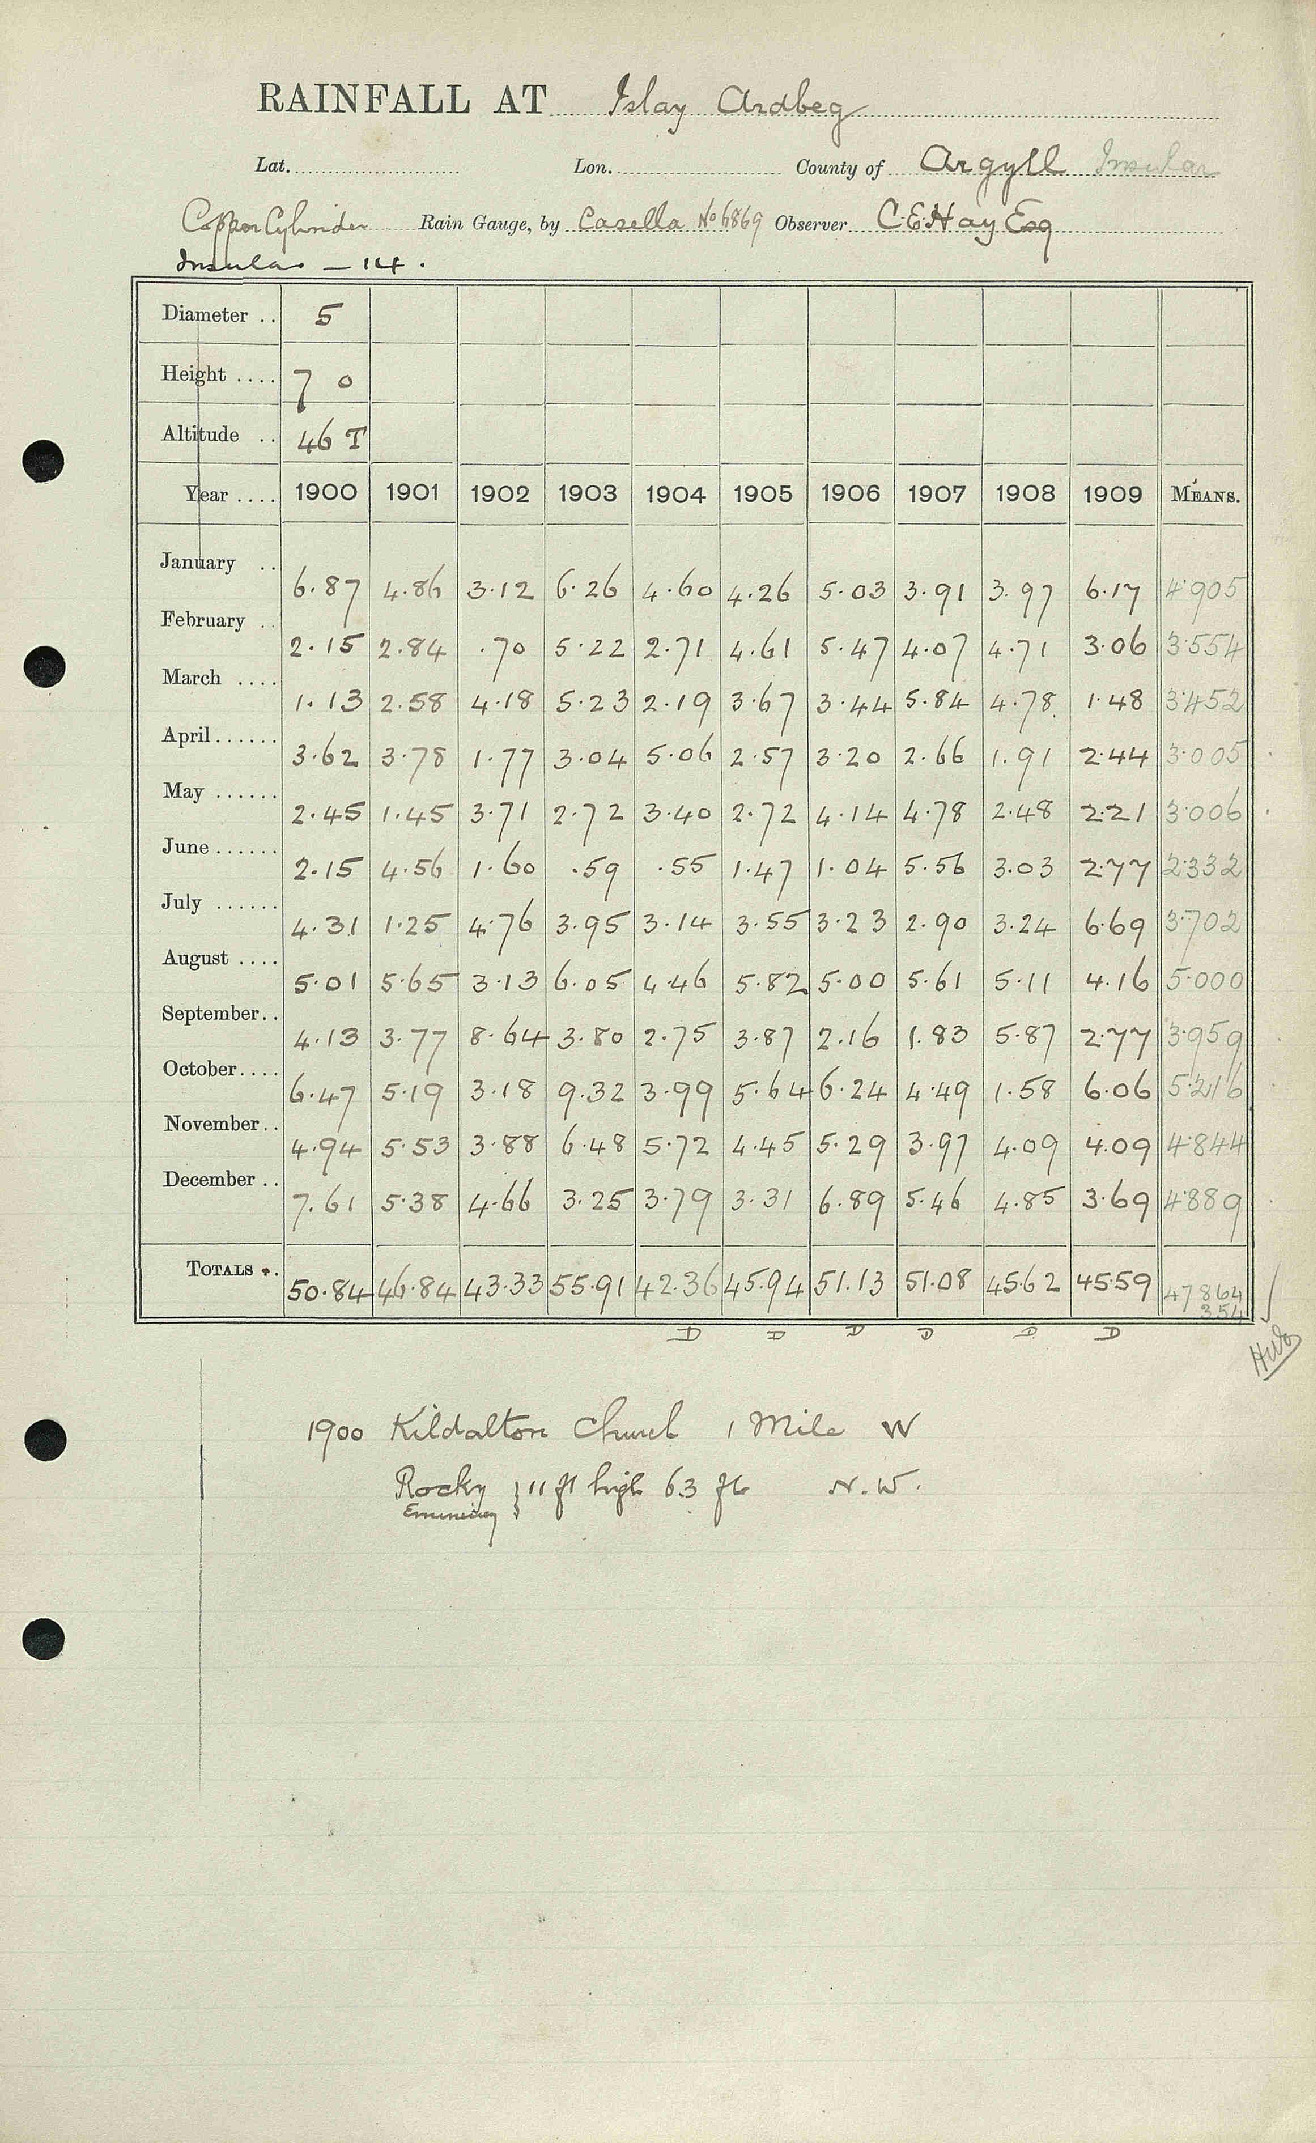 RAINFALL AT Islay Ardbeg
Lat. Lon. County of Argyll Insular
Copper Cylinder Rain Gauge, by Casella No 6869 Observer C.E. Hay Esq
Insular - 14.
Diameter .. 5
Height .... 7 0
Altitude .. 46 T
Year .... 1900 1901 1902 1903 1904 1905 1906 1907 1908 1909 MEANS.
January .. 6.87 4.86 3.12 6.26 4.60 4.26 5.03 3.91 3.97 6.17 4.905
February .. 2.15 2.84 .70 5.22 2.71 4.61 5.47 4.07 4.71 3.06 3.554
March .... 1.13 2.58 4.18 5.23 2.19 3.67 3.44 5.84 4.78 1.48 3.452
April...... 3.62 3.78 1.77 3.04 5.06 2.57 3.20 2.66 1.91 2.44 3.005
May ...... 2.45 1.45 3.71 2.72 3.40 2.72 4.14 4.78 2.48 2.21 3.006
June...... 2.15 4.56 1.60 .59 .55 1.47 1.04 5.56 3.03 2.77 2.332
July ...... 4.31 1.25 4.76 3.95 3.14 3.55 3.23 2.90 3.24 6.69 3.702
August .... 5.01 5.65 3.13 6.05 4.46 5.82 5.00 5.61 5.11 4.16 5.000
September.. 4.13 3.77 8.64 3.80 2.75 3.87 2.16 1.83 5.87 2.77 3.959
October.... 6.47 5.19 3.18 9.32 3.99 5.64 6.24 4.49 1.58 6.06 5.216
November.. 4.94 5.53 3.88 6.48 5.72 4.45 5.29 3.97 4.09 4.09 4.844
December .. 7.61 5.38 4.66 3.25 3.79 3.31 6.89 5.46 4.85 3.69 4.889
TOTALS .. 50.84 46.84 43.33 55.91 42.36 45.94 51.13 51.08 45.62 45.59 47 864
354
D D D D D D
1900 Kildalton Church 1 Mile W
Rocky } 11 ft high 63 ft N.W.